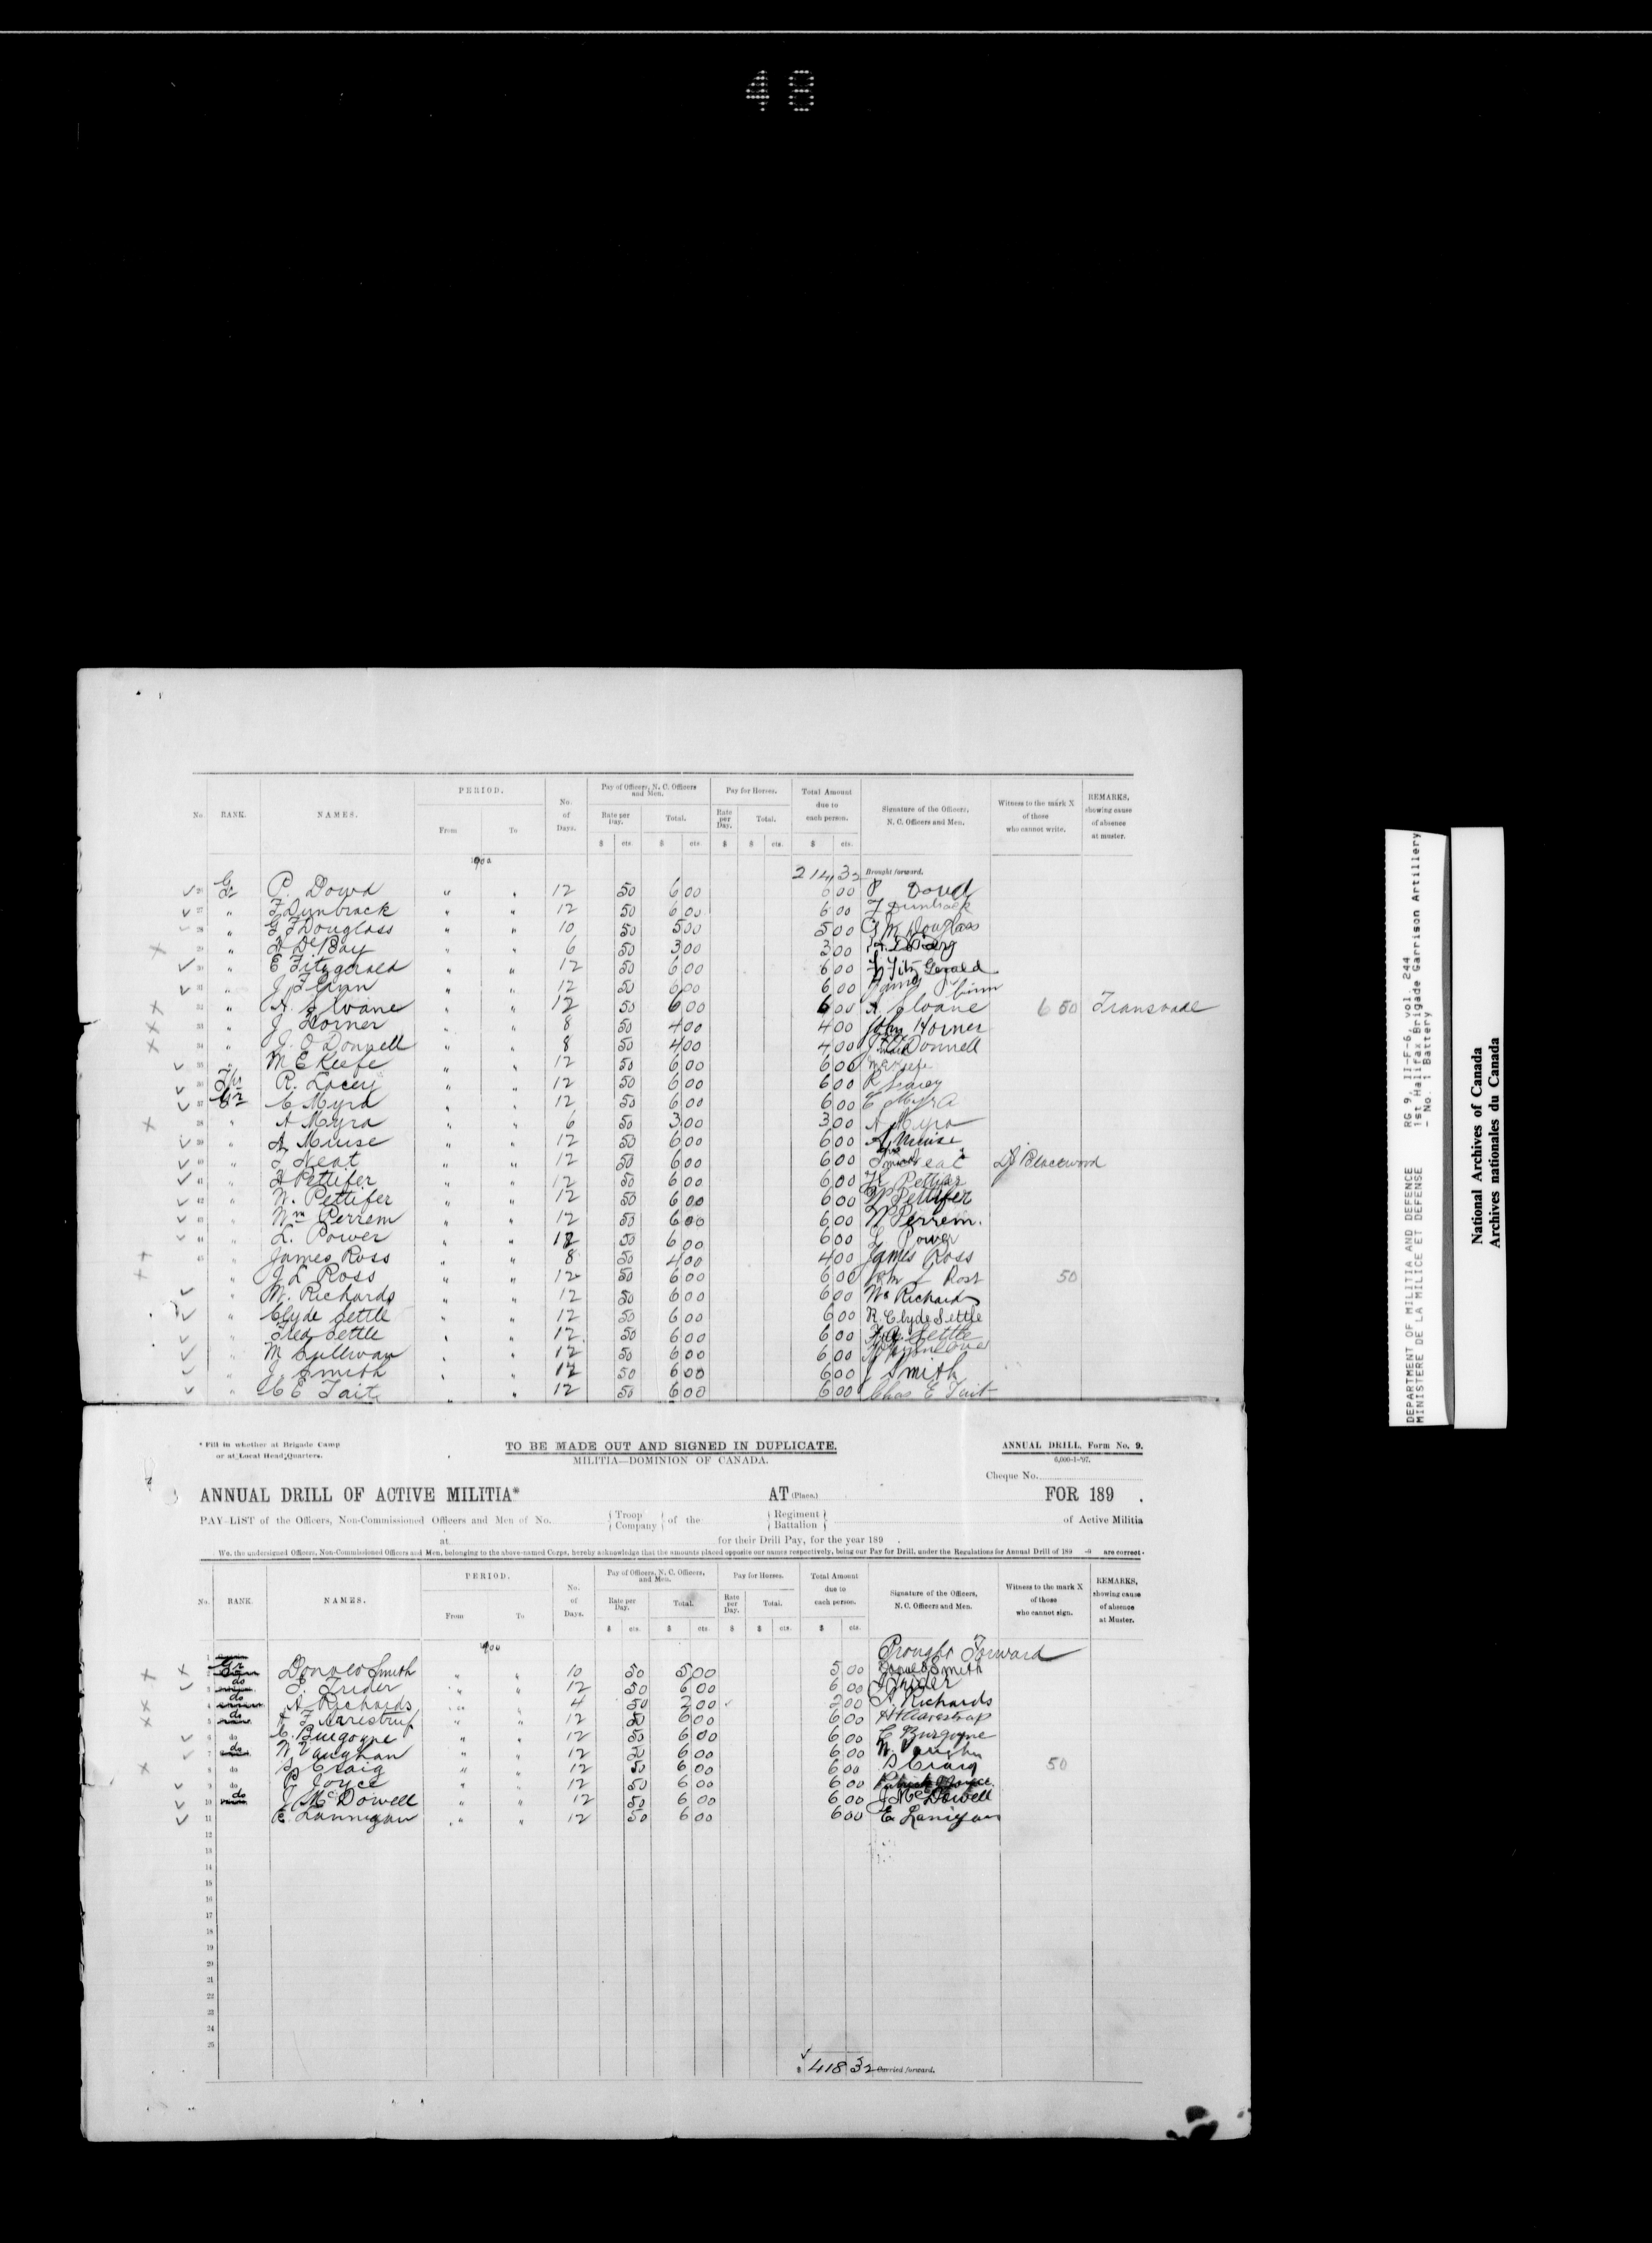 48
No. RANK. NAMES. PERIOD. From To No. of Days. Pay of Officers, N. C. Officers and Men. Rate per Day. Total. Pay for Horses. Rate per Day. Total. Total Amount due to each person. Signature of the Officers, N. C. Officers and Men. Witness to the mark X of those who cannot write. REMARKS, showing cause of absence at muster.
$ cts. $ cts. $ $ cts. $ cts.
1900 214 32 Brought forward.
26 Gr P. Dowd " " 12 50 6 00 6 00 P Dowd
27 " F Dunbrack " " 12 50 6 00 6 00 F Dunbrack
28 " G F Douglass " " 10 50 5 00 5 00 Douglass
29 " De Bay " " 6 50 3 00 3 00
30 " E Fitzgerald " " 12 50 6 00 6 00 Fitz Gerald
31 " J " " 12 50 6 00 6 00
32 " A. Sloane " " 12 50 6 00 6 00 A Sloane 6 50 Transvaal
33 " J Horner " " 8 50 4 00 4 00 John Horner
34 " J. O Donnell " " 8 50 4 00 4 00 O Donnell
35 " M E Keefe " " 12 50 6 00 6 00 M E Keefe
36 R. Lacey " " 12 50 6 00 6 00 R Lacey
37 Gr C Myra " " 12 50 6 00 6 00 C Myra
38 " A Myra " " 6 50 3 00 3 00 A Myra
39 " A Muise " " 12 50 6 00 6 00 A Muise
40 " T Neat " " 12 50 6 00 6 00 Neat Blackwood
41 " Pettifer " " 12 50 6 00 6 00 Pettifer
42 " W. Pettifer " " 12 50 6 00 6 00 W Pettifer
43 " Wm Perrem " " 12 50 6 00 6 00 W Perrem.
44 " L. Power " " 12 50 6 00 6 00 L Power
45 James Ross " " 8 50 4 00 4 00 James Ross
" J L Ross " " 12 50 6 00 6 00 John L Ross 50
" W. Richards " " 12 50 6 00 6 00 Wm Richards
" Clyde Settle " " 12 50 6 00 6 00 R. Clyde Settle
" Fred Settle " " 12 50 6 00 6 00 Settle
" M Sullivan " " 12 50 6 00 6 00
" J. Smith " " 12 50 6 00 6 00 J Smith
" C E Tait " " 12 50 6 00 6 00 Chas E Tait
* Fill in whether at Brigade Camp or at Local Head Quarters.
TO BE MADE OUT AND SIGNED IN DUPLICATE.
MILITIA—DOMINION OF CANADA.
ANNUAL DRILL, Form No. 9.
6,000-1-'97.
Cheque No.
ANNUAL DRILL OF ACTIVE MILITIA* AT (Place.) FOR 189 .
PAY-LIST of the Officers, Non-Commissioned Officers and Men of No. { Troop Company } of the { Regiment Battalion } of Active Militia
at for their Drill Pay, for the year 189 .
We, the undersigned Officers, Non-Commissioned Officers and Men, belonging to the above-named Corps, hereby acknowledge that the amounts placed opposite our names respectively, being our Pay for Drill, under the Regulations for Annual Drill of 189 -9 are correct.
No. RANK. NAMES. PERIOD. From To No. of Days. Pay of Officers, N. C. Officers, and Men. Rate per Day. Total. Pay for Horses. Rate per Day. Total. Total Amount due to each person. Signature of the Officers, N. C. Officers and Men. Witness to the mark X of those who cannot sign. REMARKS, showing cause of absence at Muster.
$ cts. $ cts. $ $ cts. $ cts.
1 1900 Brought Forward
2 Gr Donald Smith " " 10 50 5 00 5 00 Donald Smith
3 do Trider " " 12 50 6 00 6 00 Trider
4 do A Richards " " 4 50 2 00 2 00 A. Richards
5 do " " 12 50 6 00 6 00
6 do C. Burgoyne " " 12 50 6 00 6 00 C Burgoyne
7 do W Vaughan " " 12 50 6 00 6 00 W. Vaughn
8 do S Craig " " 12 50 6 00 6 00 S Craig 50
9 do P Joyce " " 12 50 6 00 6 00 Patrick Joyce
10 do J McDowell " " 12 50 6 00 6 00 J McDowell
11 E. Lannigan " " 12 50 6 00 6 00 E Lanigan
12
13
14
15
16
17
18
19
20
21
22
23
24
25
$ 418 32 Carried forward.
DEPARTMENT OF MILITIA AND DEFENCE RG 9, II-F-6, vol. 244
MINISTERE DE LA MILICE ET DEFENSE 1st Halifax Brigade Garrison Artillery
- No. 1 Battery
National Archives of Canada
Archives nationales du Canada